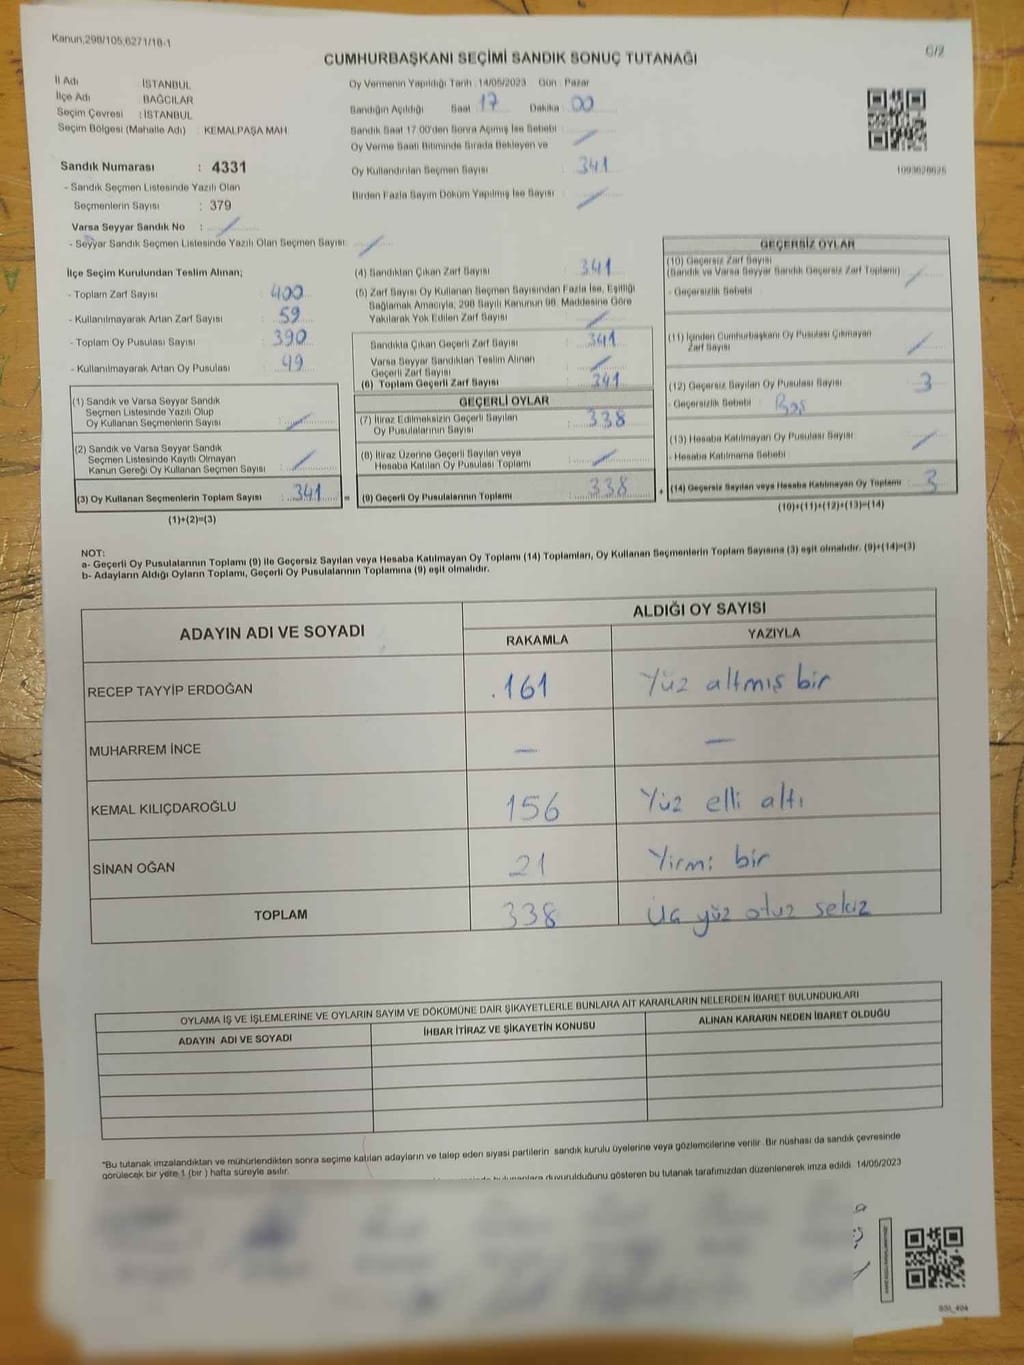 Kanun,298/105,6271/18-1
C/2
CUMHURBAŞKANI SEÇİMİ SANDIK SONUÇ TUTANAĞI
İl Adı İSTANBUL
İlçe Adı BAĞCILAR
Seçim Çevresi : İSTANBUL
Seçim Bölgesi (Mahalle Adı) : KEMALPAŞA MAH.
Sandık Numarası : 4331
- Sandık Seçmen Listesinde Yazılı Olan
Seçmenlerin Sayısı : 379
Varsa Seyyar Sandık No :
- Seyyar Sandık Seçmen Listesinde Yazılı Olan Seçmen Sayısı:
Oy Vermenin Yapıldığı Tarih : 14/05/2023 Gün : Pazar
Sandığın Açıldığı Saat 17 Dakika 00
Sandık Saat 17:00'den Sonra Açılmış İse Sebebi
Oy Verme Saati Bitiminde Sırada Bekleyen ve
Oy Kullandırılan Seçmen Sayısı 341
Birden Fazla Sayım Döküm Yapılmış İse Sayısı
1093626626
İlçe Seçim Kurulundan Teslim Alınan;
- Toplam Zarf Sayısı : 400
- Kullanılmayarak Artan Zarf Sayısı : 59
- Toplam Oy Pusulası Sayısı : 390
- Kullanılmayarak Artan Oy Pusulası : 49
(1) Sandık ve Varsa Seyyar Sandık
Seçmen Listesinde Yazılı Olup
Oy Kullanan Seçmenlerin Sayısı
(2) Sandık ve Varsa Seyyar Sandık
Seçmen Listesinde Kayıtlı Olmayan
Kanun Gereği Oy Kullanan Seçmen Sayısı
(3) Oy Kullanan Seçmenlerin Toplam Sayısı : 341 =
(1)+(2)=(3)
(4) Sandıktan Çıkan Zarf Sayısı 341
(5) Zarf Sayısı Oy Kullanan Seçmen Sayısından Fazla İse, Eşitliği
Sağlamak Amacıyla, 298 Sayılı Kanunun 98. Maddesine Göre
Yakılarak Yok Edilen Zarf Sayısı
Sandıkta Çıkan Geçerli Zarf Sayısı 341
Varsa Seyyar Sandıktan Teslim Alınan
Geçerli Zarf Sayısı
(6) Toplam Geçerli Zarf Sayısı 341
GEÇERLİ OYLAR
(7) İtiraz Edilmeksizin Geçerli Sayılan
Oy Pusulalarının Sayısı : 338
(8) İtiraz Üzerine Geçerli Sayılan veya
Hesaba Katılan Oy Pusulası Toplamı
(9) Geçerli Oy Pusulalarının Toplamı : 338 +
GEÇERSİZ OYLAR
(10) Geçersiz Zarf Sayısı
(Sandık ve Varsa Seyyar Sandık Geçersiz Zarf Toplamı)
- Geçersizlik Sebebi :
(11) İçinden Cumhurbaşkanı Oy Pusulası Çıkmayan
Zarf Sayısı
(12) Geçersiz Sayılan Oy Pusulası Sayısı 3
- Geçersizlik Sebebi : Boş
(13) Hesaba Katılmayan Oy Pusulası Sayısı
- Hesaba Katılmama Sebebi :
(14) Geçersiz Sayılan veya Hesaba Katılmayan Oy Toplamı : 3
(10)+(11)+(12)+(13)=(14)
NOT:
a- Geçerli Oy Pusulalarının Toplamı (9) ile Geçersiz Sayılan veya Hesaba Katılmayan Oy Toplamı (14) Toplamları, Oy Kullanan Seçmenlerin Toplam Sayısına (3) eşit olmalıdır. (9)+(14)=(3)
b- Adayların Aldığı Oyların Toplamı, Geçerli Oy Pusulalarının Toplamına (9) eşit olmalıdır.
ADAYIN ADI VE SOYADI ALDIĞI OY SAYISI
RAKAMLA YAZIYLA
RECEP TAYYİP ERDOĞAN .161 Yüz altmış bir
MUHARREM İNCE — —
KEMAL KILIÇDAROĞLU 156 Yüz elli altı
SİNAN OĞAN 21 Yirmi bir
TOPLAM 338 Üç yüz otuz sekiz
OYLAMA İŞ VE İŞLEMLERİNE VE OYLARIN SAYIM VE DÖKÜMÜNE DAİR ŞİKAYETLERLE BUNLARA AİT KARARLARIN NELERDEN İBARET BULUNDUKLARI
ADAYIN ADI VE SOYADI İHBAR İTİRAZ VE ŞİKAYETİN KONUSU ALINAN KARARIN NEDEN İBARET OLDUĞU
*Bu tutanak imzalandıktan ve mühürlendikten sonra seçime katılan adayların ve talep eden siyasi partilerin sandık kurulu üyelerine veya gözlemcilerine verilir. Bir nüshası da sandık çevresinde
görülecek bir yere 1 (bir ) hafta süreyle asılır.
duyurulduğunu gösteren bu tutanak tarafımızdan düzenlenerek imza edildi. 14/05/2023